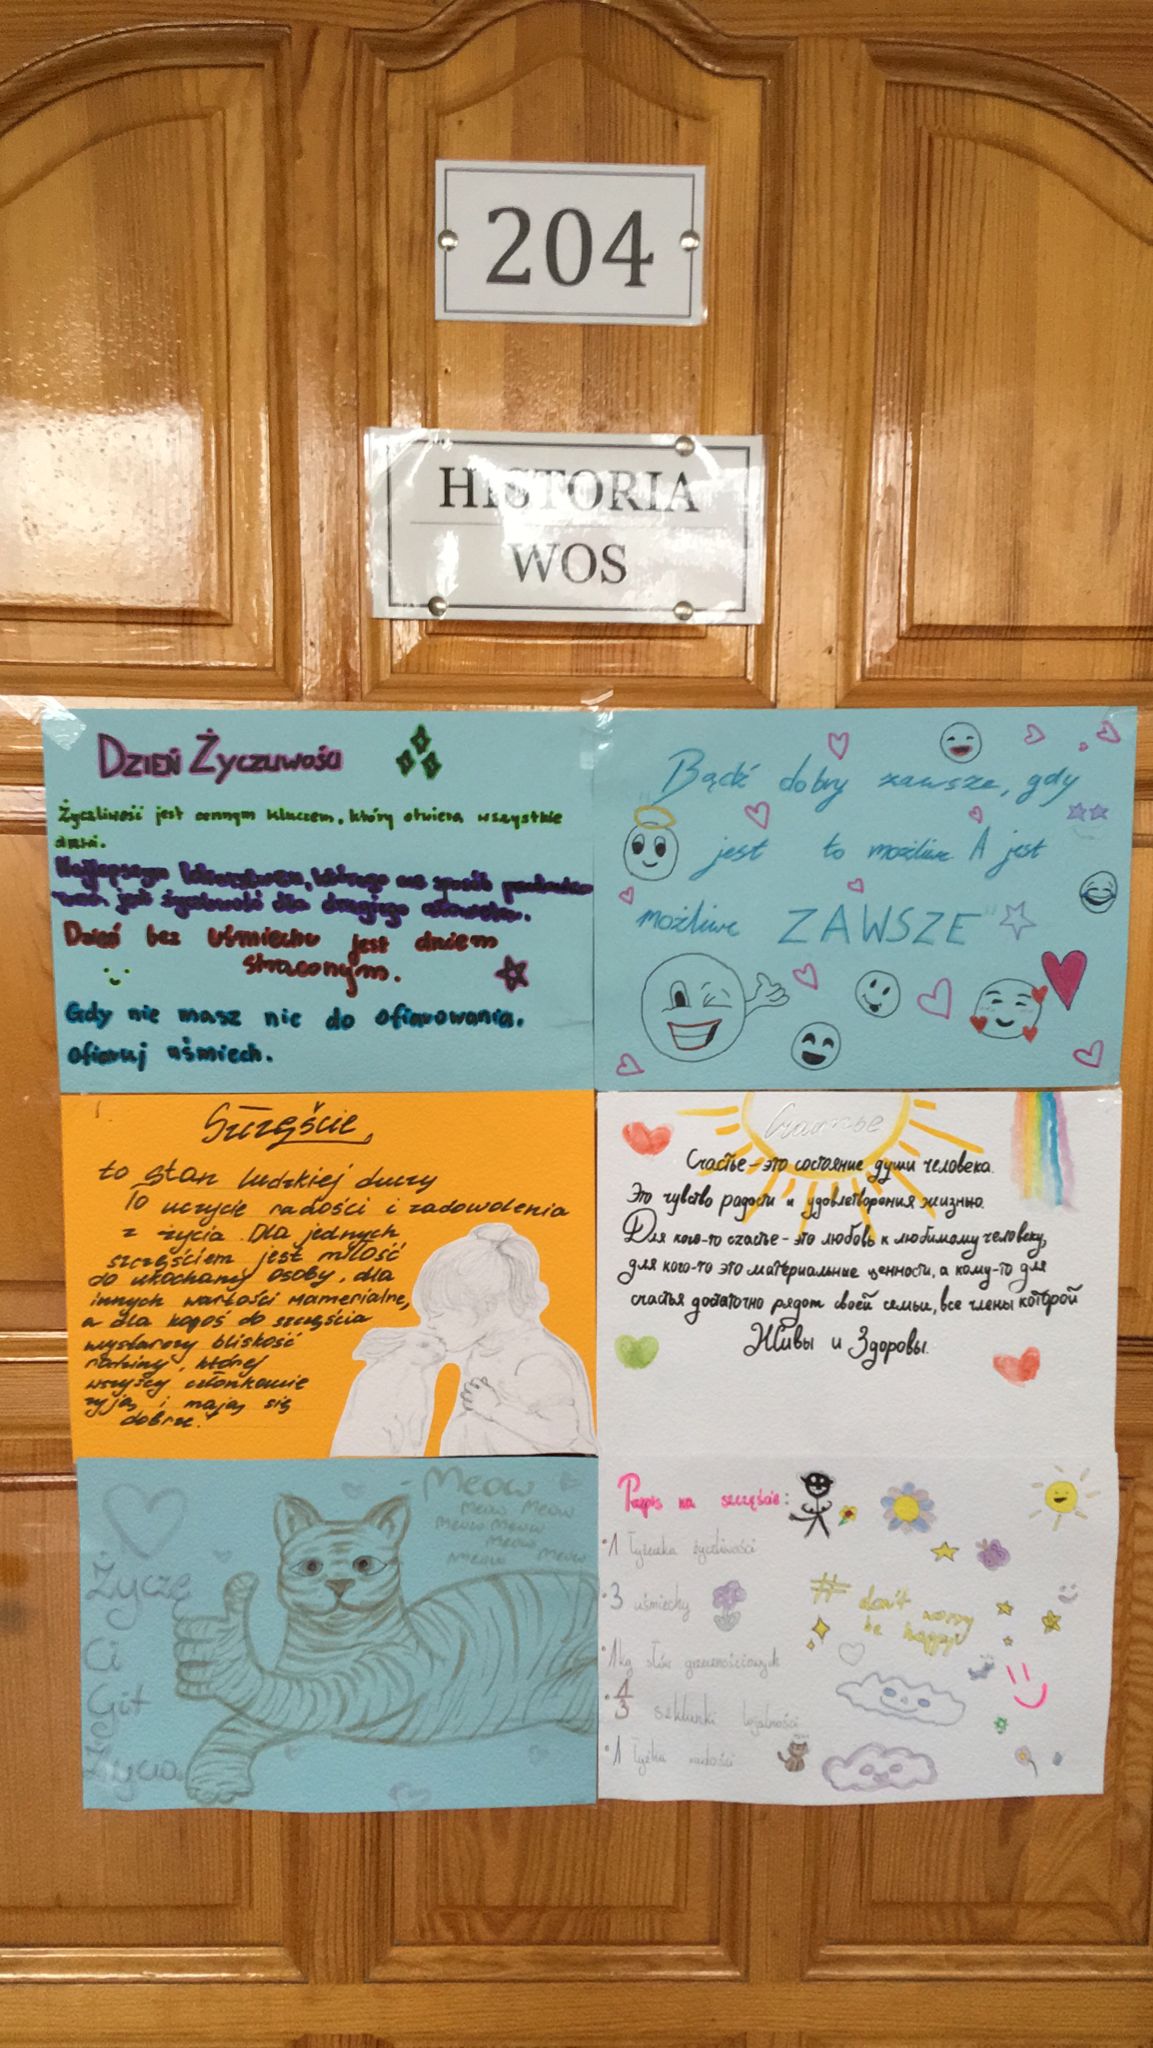 204
HISTORIA
WOS
DZIEŃ ŻYCZLIWOŚCI
Życzliwość jest cennym kluczem, który otwiera wszystkie
drzwi.
Najlepszym lekarstwem, którego
jest życzliwość dla drugiego człowieka.
Dzień bez uśmiechu jest dniem
straconym.
Gdy nie masz nic do ofiarowania,
ofiaruj uśmiech.
"Bądź dobry zawsze, gdy
jest to możliwe A jest
możliwe ZAWSZE"
Szczęście
to stan ludzkiej duszy
To uczycie radości i zadowolenia
z życia. Dla jednych
szczęściem jest miłość
do ukochanej osoby, dla
innych wartości mamerialne,
a dla kogoś do szczęścia
wystarczy bliskość
rodziny, której
wszyscy członkowie
żyją i mają się
dobrze."
Счастье
Счастье - это состояние души человека.
Это чувство радости и удовлетворения жизнью.
Для кого-то счастье - это любовь к любимому человеку,
для кого-то это материальные ценности, а кому-то для
счастья достаточно рядом своей семьи, все члены которой
Живы и Здоровы.
- Meow
meow Meow
meow Meow
meow
meow Meow
Życzę
Ci
Git
Życia
Przepis na szczęście:
•1 łyżeczka życzliwości
•3 uśmiechy
# don't
worry
be happy
•1kg słów grzecznościowych
•1/3 szklanki lojalności
•1 łyżka radości